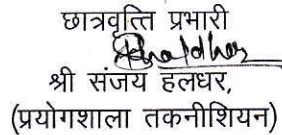 छात्रवृत्ति प्रभारी
श्री संजय हलधर,
(प्रयोगशाला तकनीशियन)